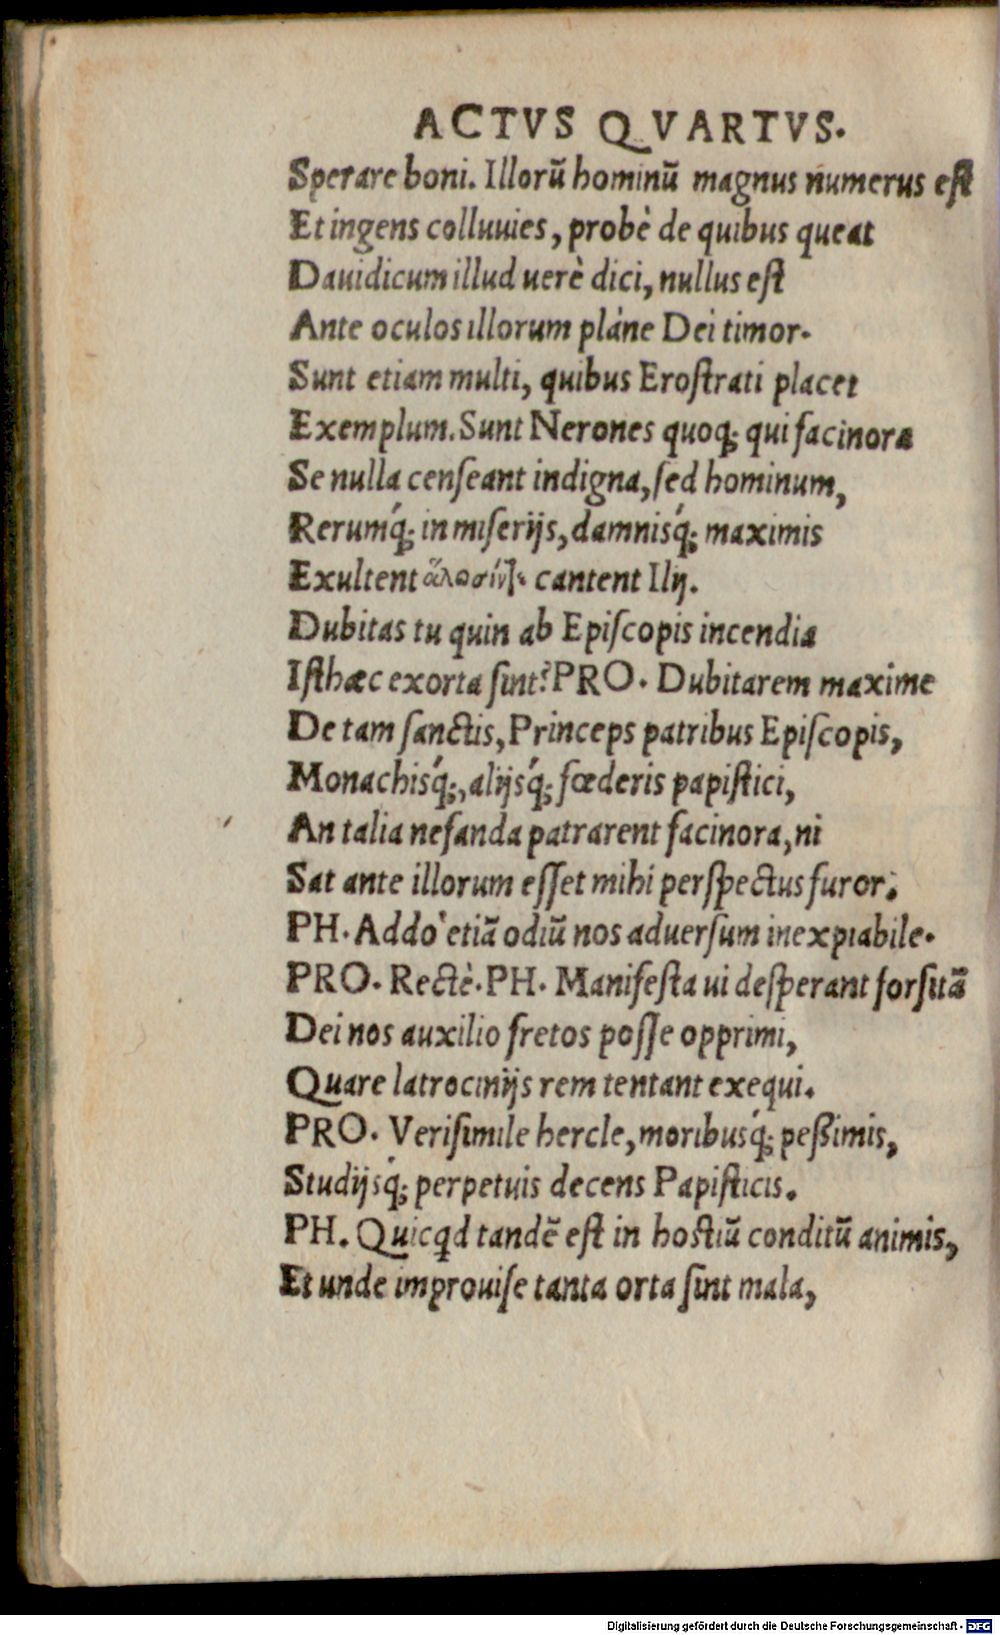 ACTVS QVARTVS.
Sperare boni. Illorū hominū magnus numerus eſt
Et ingens colluuies, probè de quibus queat
Dauidicum illud uerè dici, nullus eſt
Ante oculos illorum plàne Dei timor.
Sunt etiam multi, quibus Eroſtrati placet
Exemplum. Sunt Nerones quoq; qui facinora
Se nulla cenſeant indigna, ſed hominum,
Rerumq́; in miſerijs, damnisq́; maximis
Exultent cantent Ilij.
Dubitas tu quin ab Epiſcopis incendia
Iſthæc exorta ſint? PRO. Dubitarem maxime
De tam ſanctis, Princeps patribus Epiſcopis,
Monachisq́;, alijsq́; fœderis papiſtici,
An talia nefanda patrarent facinora, ni
Sat ante illorum eſſet mihi perſpectus furor.
PH. Addo etiā odiū nos aduerſum inexpiabile.
PRO. Rectè. PH. Manifeſta ui deſperant forſitā
Dei nos auxilio fretos poſſe opprimi,
Quare latrocinijs rem tentant exequi.
PRO. Veriſimile hercle, moribusq́; peßimis,
Studijsq́; perpetuis decens Papiſticis.
PH. Quicqd tandē eſt in hoſtiū conditū animis,
Et unde improuiſe tanta orta ſint mala,
Digitalisierung gefördert durch die Deutsche Forschungsgemeinschaft - DFG